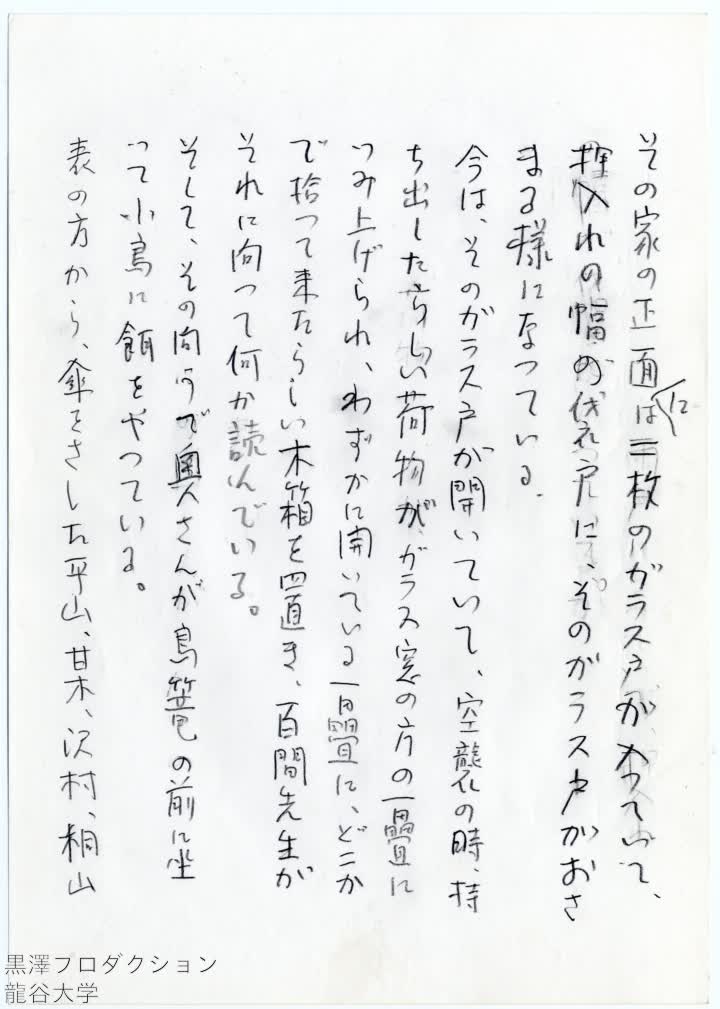 その家の正面には三枚のガラス戸があっていて、
押入れの幅の袋戸に、そのガラス戸がおさ
まる様になっている。
今は、そのガラス戸が開いていて、空襲の時、持
ち出したらしい荷物が、ガラス窓の方の一畳に
つみ上げられ、わずかに開いている一畳に、どこか
で拾って来たらしい木箱を置き、百間先生が
それに向って何か読んでいる。
そして、その向うで奥さんが鳥篭の前に坐
って小鳥に餌をやっている。
表の方から、傘をさした平山、甘木、沢村、桐山
黒澤プロダクション
龍谷大学